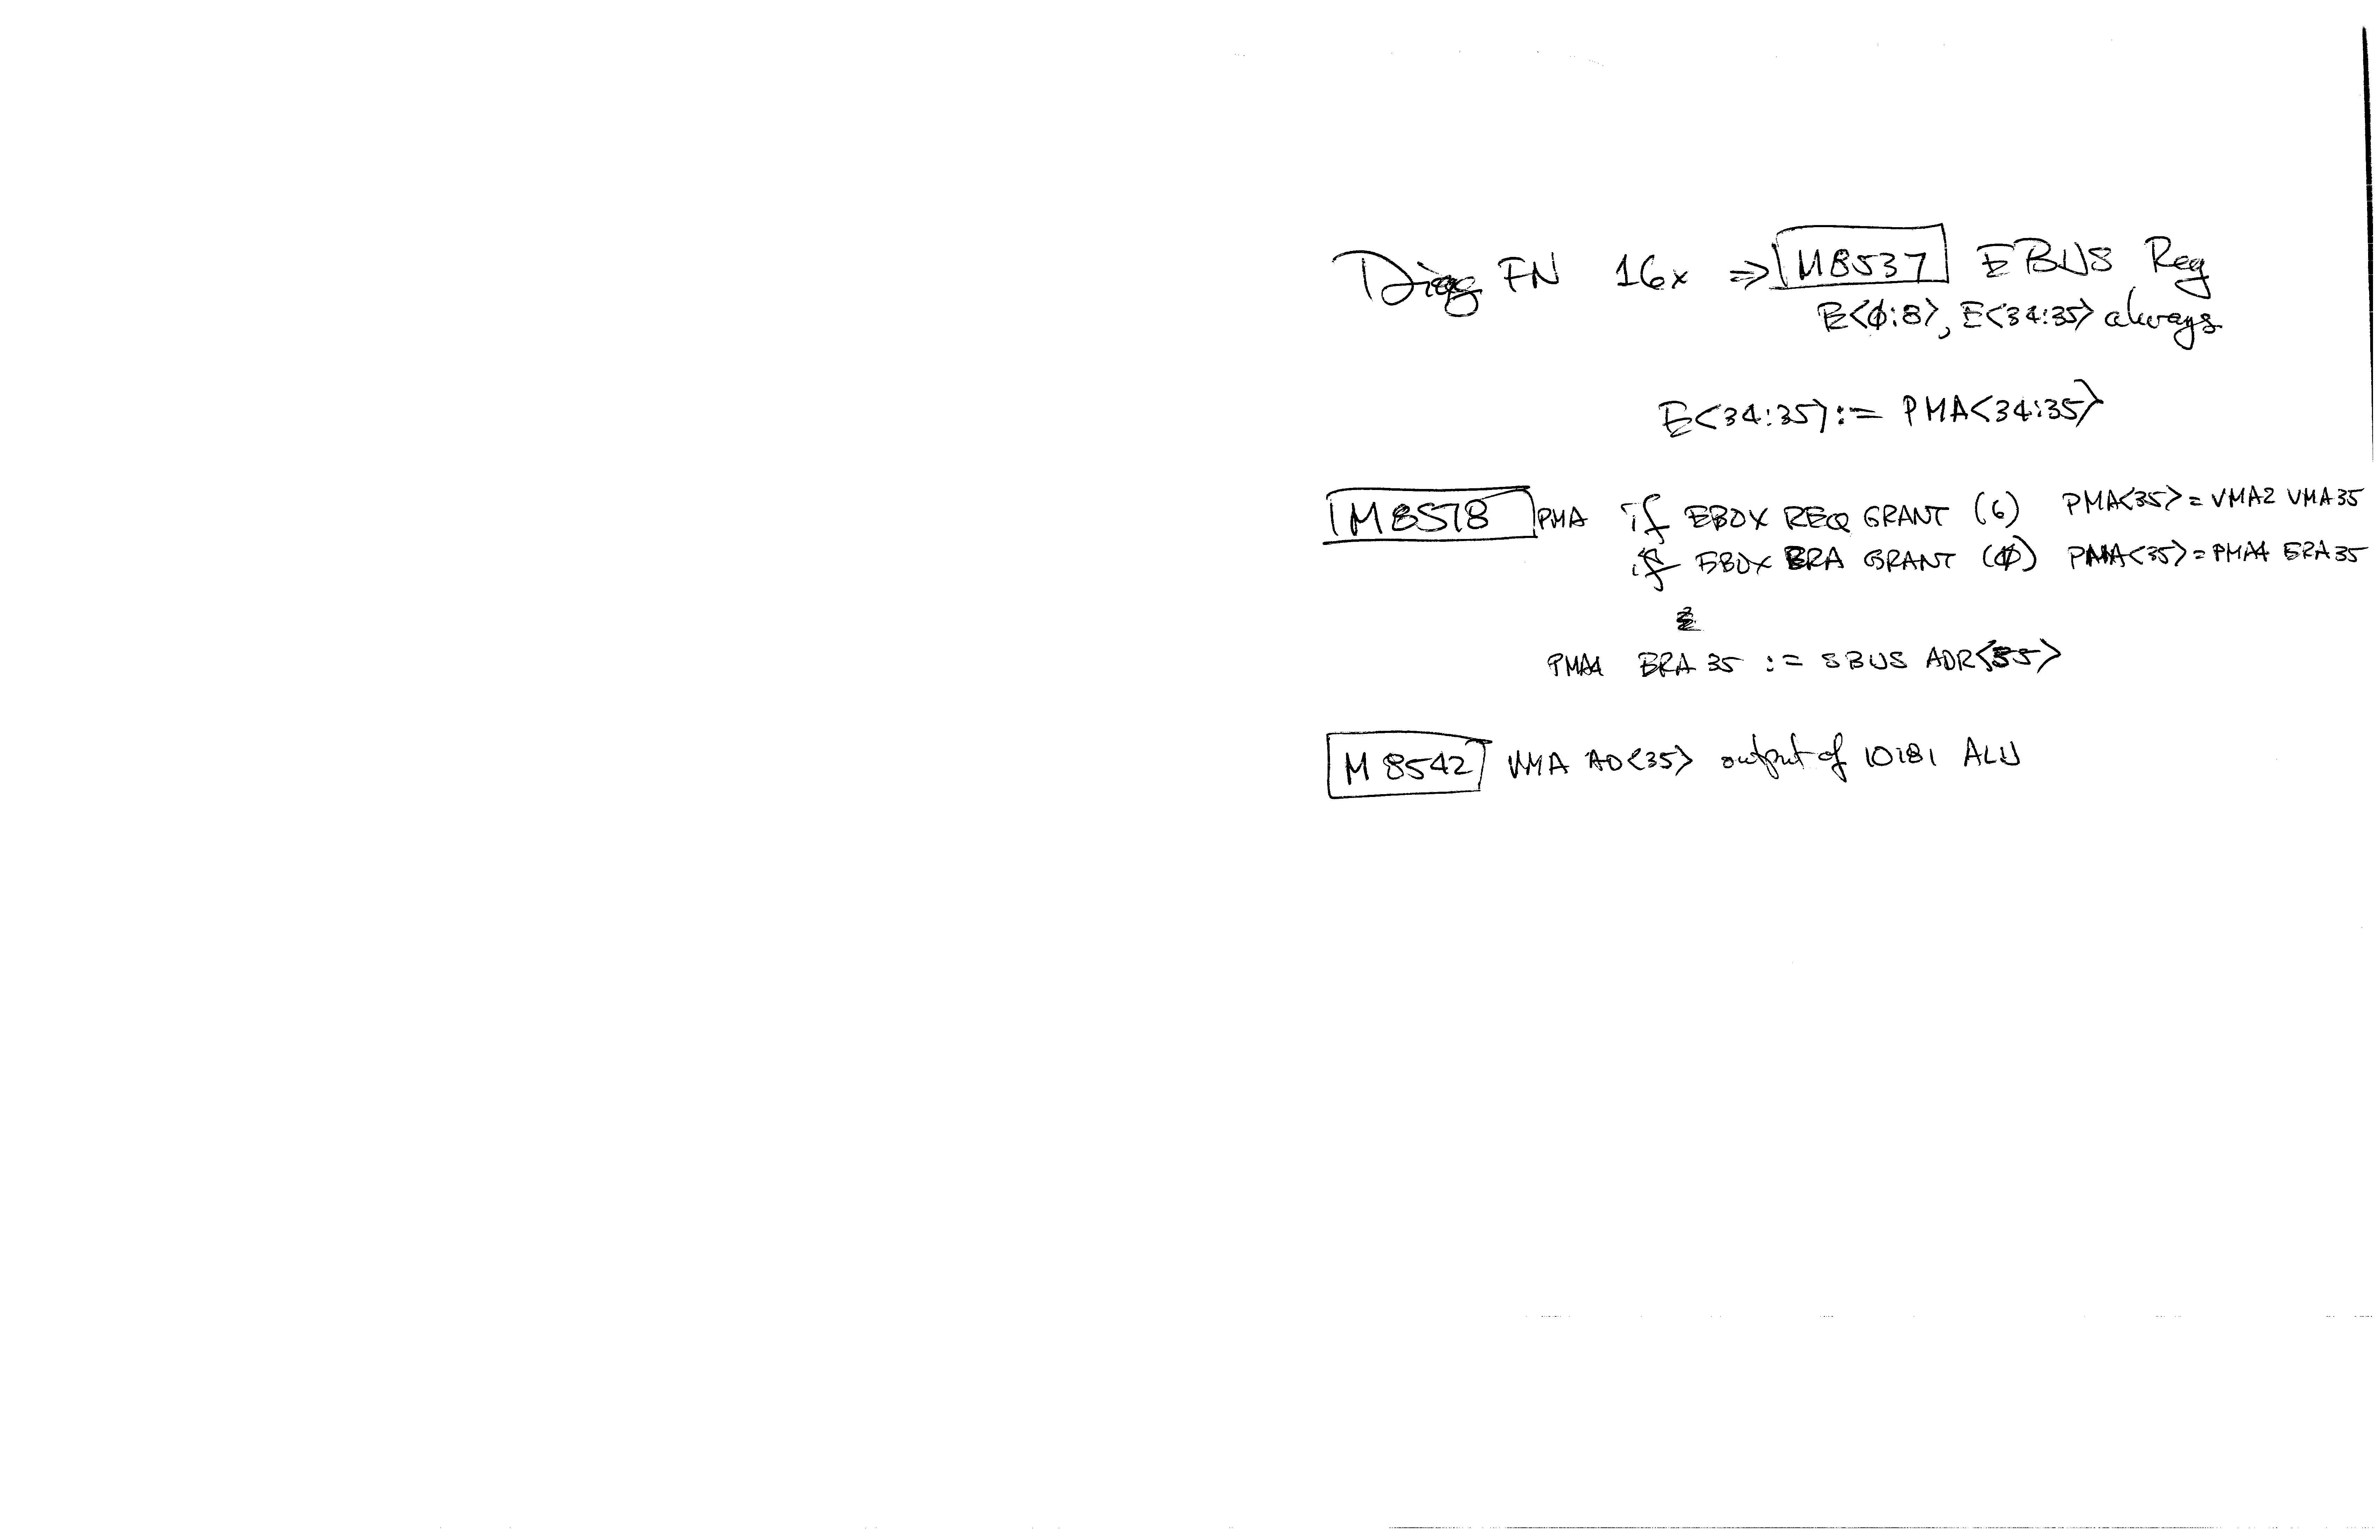 Diag FN 16x ⇒ M8537 EBUS Reg
E<ϕ:8>, E<34:35> always
E<34:35> := PMA<34:35>
M8518 PMA if EBOX REQ GRANT (6) PMA<35> = VMA2 VMA35
if EBOX ERA GRANT (ϕ) PMA<35> = PMA4 ERA35
PMA4 ERA 35 := SBUS ADR<35>
M8542 VMA AD<35> output of 10181 ALU